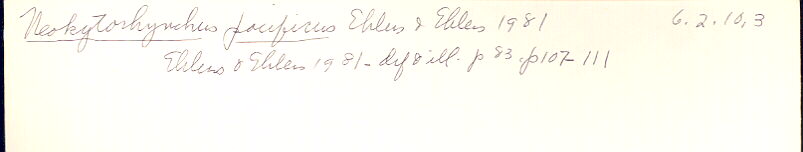 Neokytorhynchus pacificus Ehlers & Ehlers 1981 6.2.10,3
Ehlers & Ehlers 1981- df & ill. p 83. p107-111